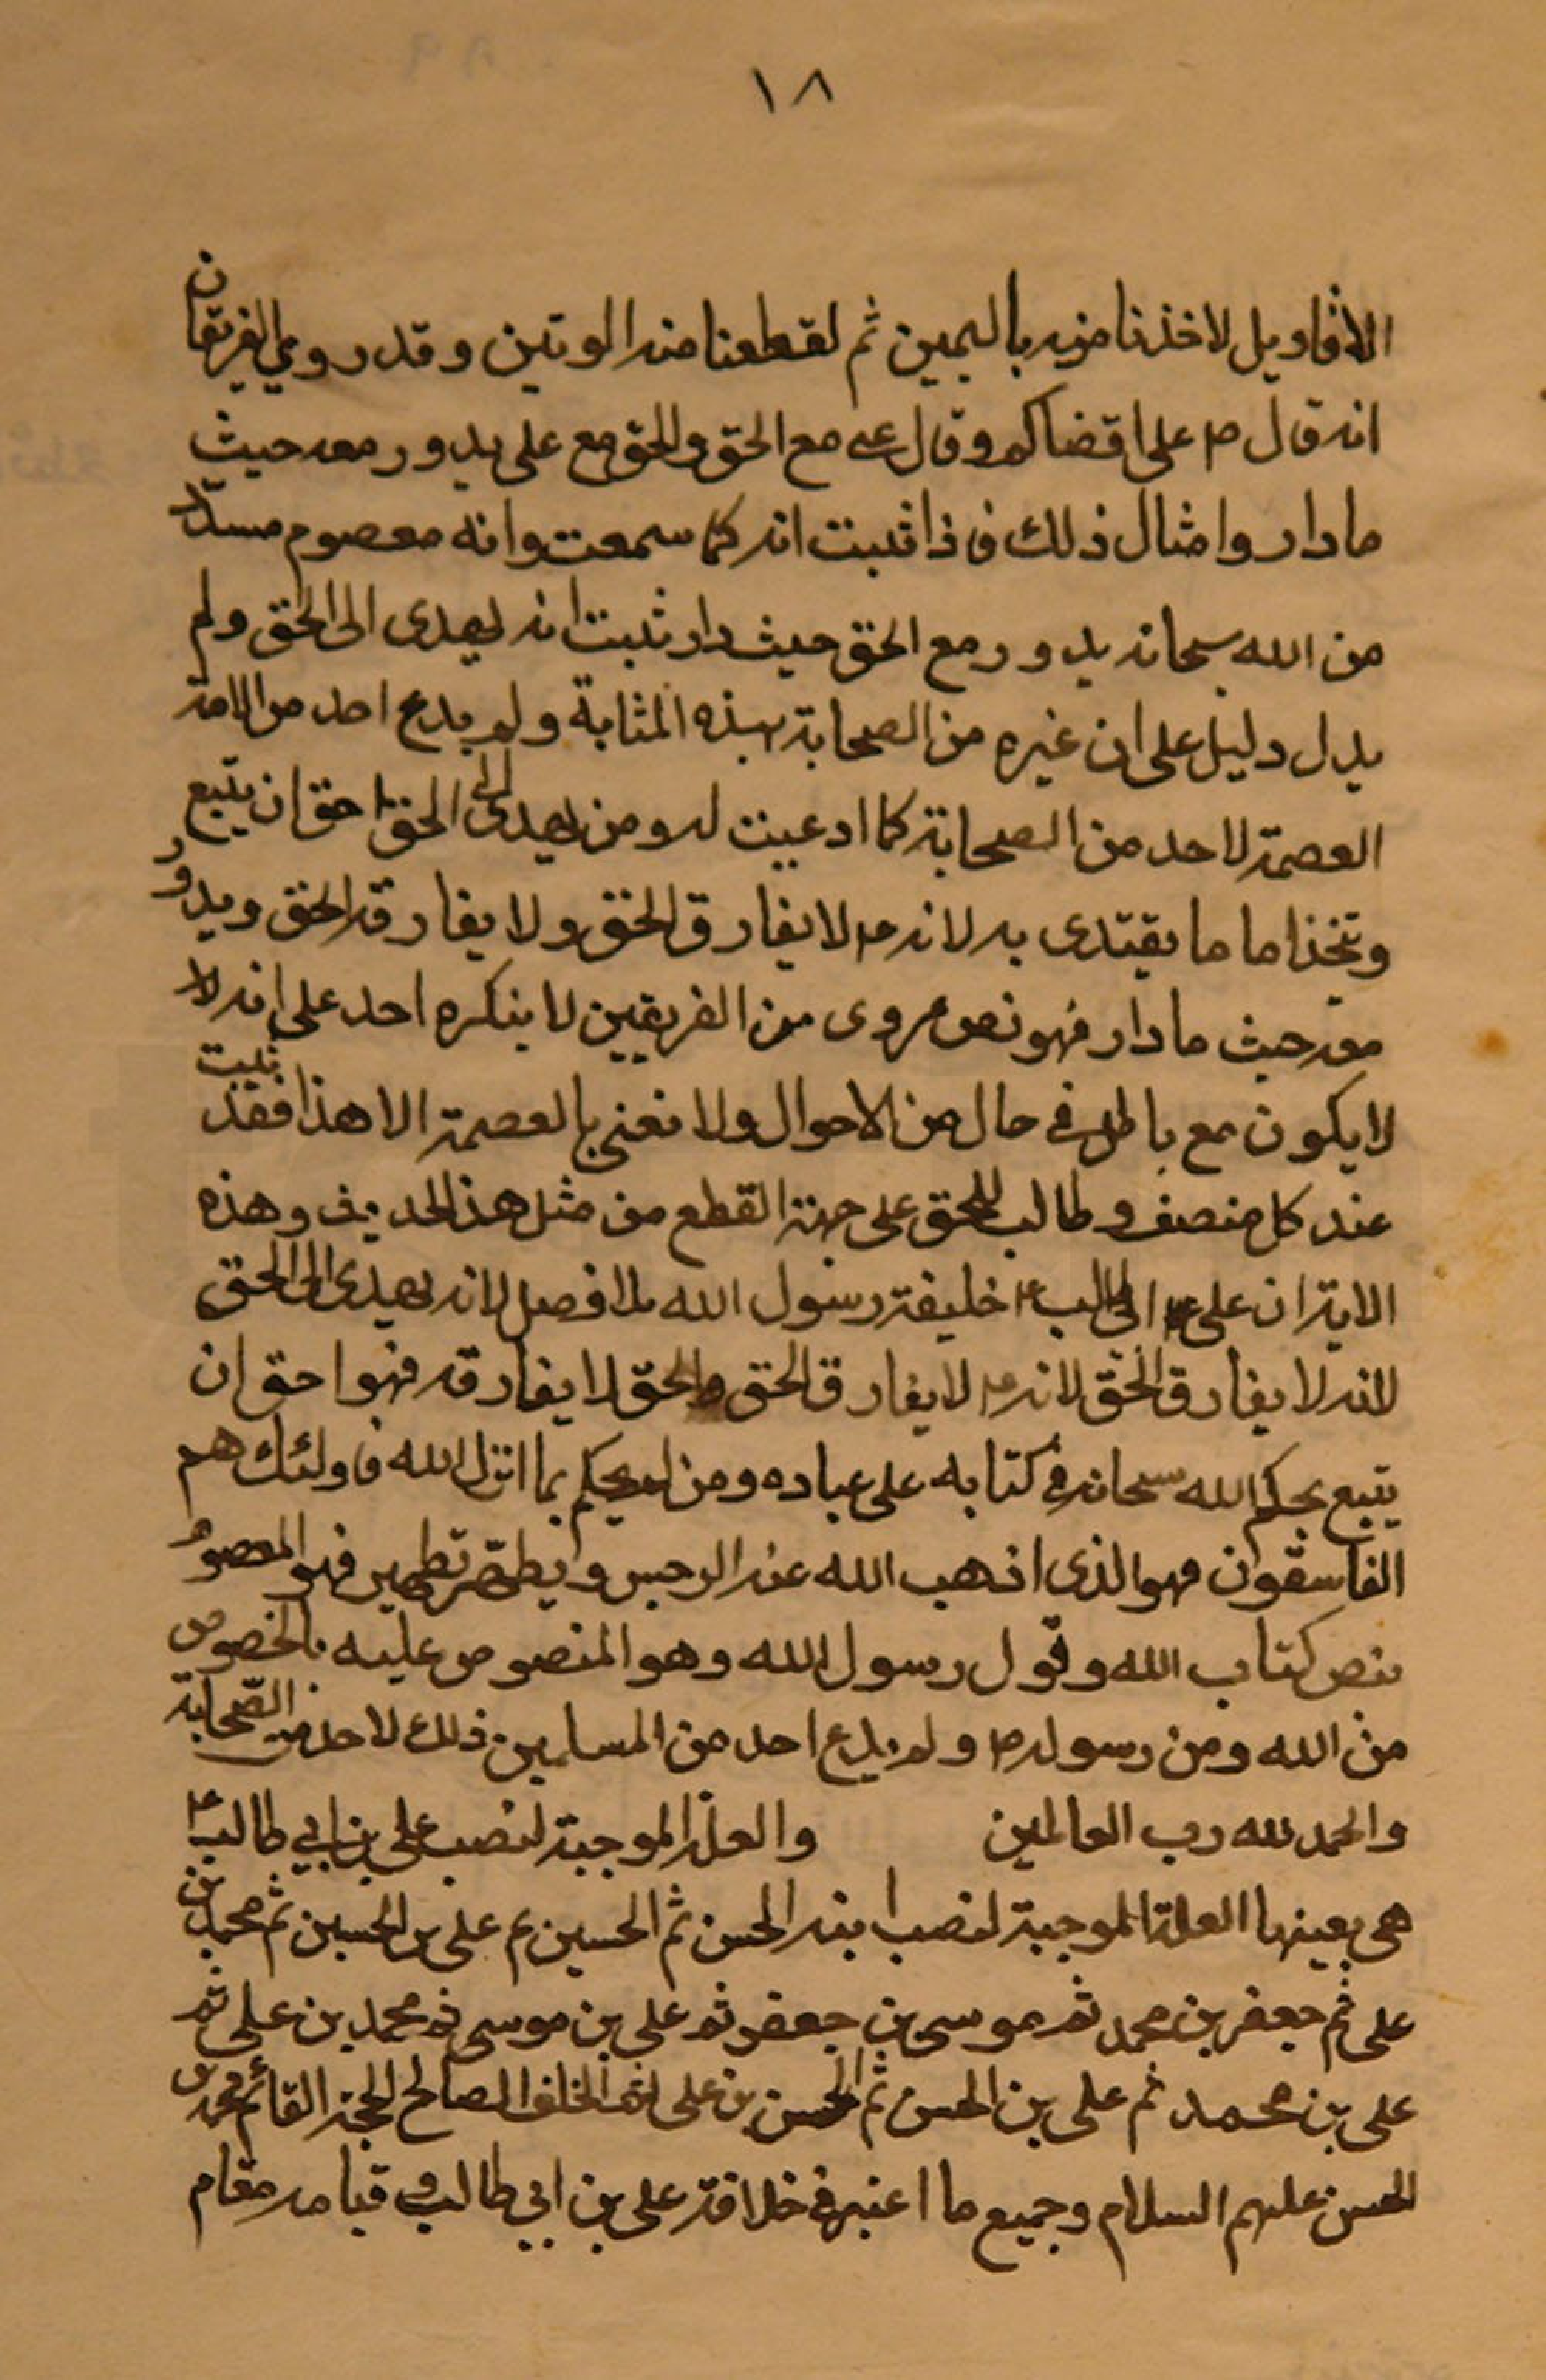 ١٨
الاقاويل لاخذنا منه باليمين ثم لقطعنا منه الوتين وقد روي الفريقان
انه قال ص علي اقضاكم وقال علي مع الحق والحق مع علي يدور معه حيث
ما دار وامثال ذلك فاذا ثبت انه كما سمعت وانه معصوم مسدد
من الله سبحانه يدور مع الحق حيث دار ثبت انه يهدى الى الحق ولم
يدل دليل على ان غيره من الصحابة بهذه المثابة ولم يدع احد من الامة
العصمة لاحد من الصحابة كما ادعيت له ومن يهدى الى الحق احق ان يتبع
وتتخذ اماما يقتدى به لانه ع لا يفارق الحق ولا يفارقه الحق ويدور
معه حيث ما دار فهو نص مروى من الفريقين لا ينكره احد على انه لا
لا يكون مع باطل في حال من الاحوال ولا نعنى بالعصمة الا هذا فقد ثبت
عند كل منصف وطالب للحق على جهة القطع من مثل هذا الحديث وهذه
الاية ان على ابى طالب ع خليفة رسول الله بلا فصل لانه يهدى الى الحق
لانه لا يفارق الحق لانه ع لا يفارق الحق والحق لا يفارقه فهو احق ان
يتبع بحكم الله سبحانه في كتابه على عباده ومن لم يحكم بما انزل الله فاولئك هم
الفاسقون فهو الذى اذهب الله عنه الرجس و يطهر تطهير فهو المعصوم
بنص كتاب الله وقول رسول الله وهو المنصوص عليه بالخصوص
من الله ومن رسوله ص ولم يدع احد من المسلمين ذلك لاحد من الصحابة
والحمد لله رب العالمين والعلة الموجبة لنصب علي بن ابي طالب ع
هي بعينها العلة الموجبة لنصب ابنه الحسن ثم الحسين ثم على بن الحسين ثم محمد بن
على ثم جعفر بن محمد ثم موسى بن جعفر ثم على بن موسى ثم محمد بن على ثم
على بن محمد ثم على بن الحسن ثم الحسن بن على ثم الخلف الصالح الحجة القائم محمد بن
الحسن عليهم السلام وجميع ما اعتبر في خلافة على بن ابي طالب وقيامه مقام